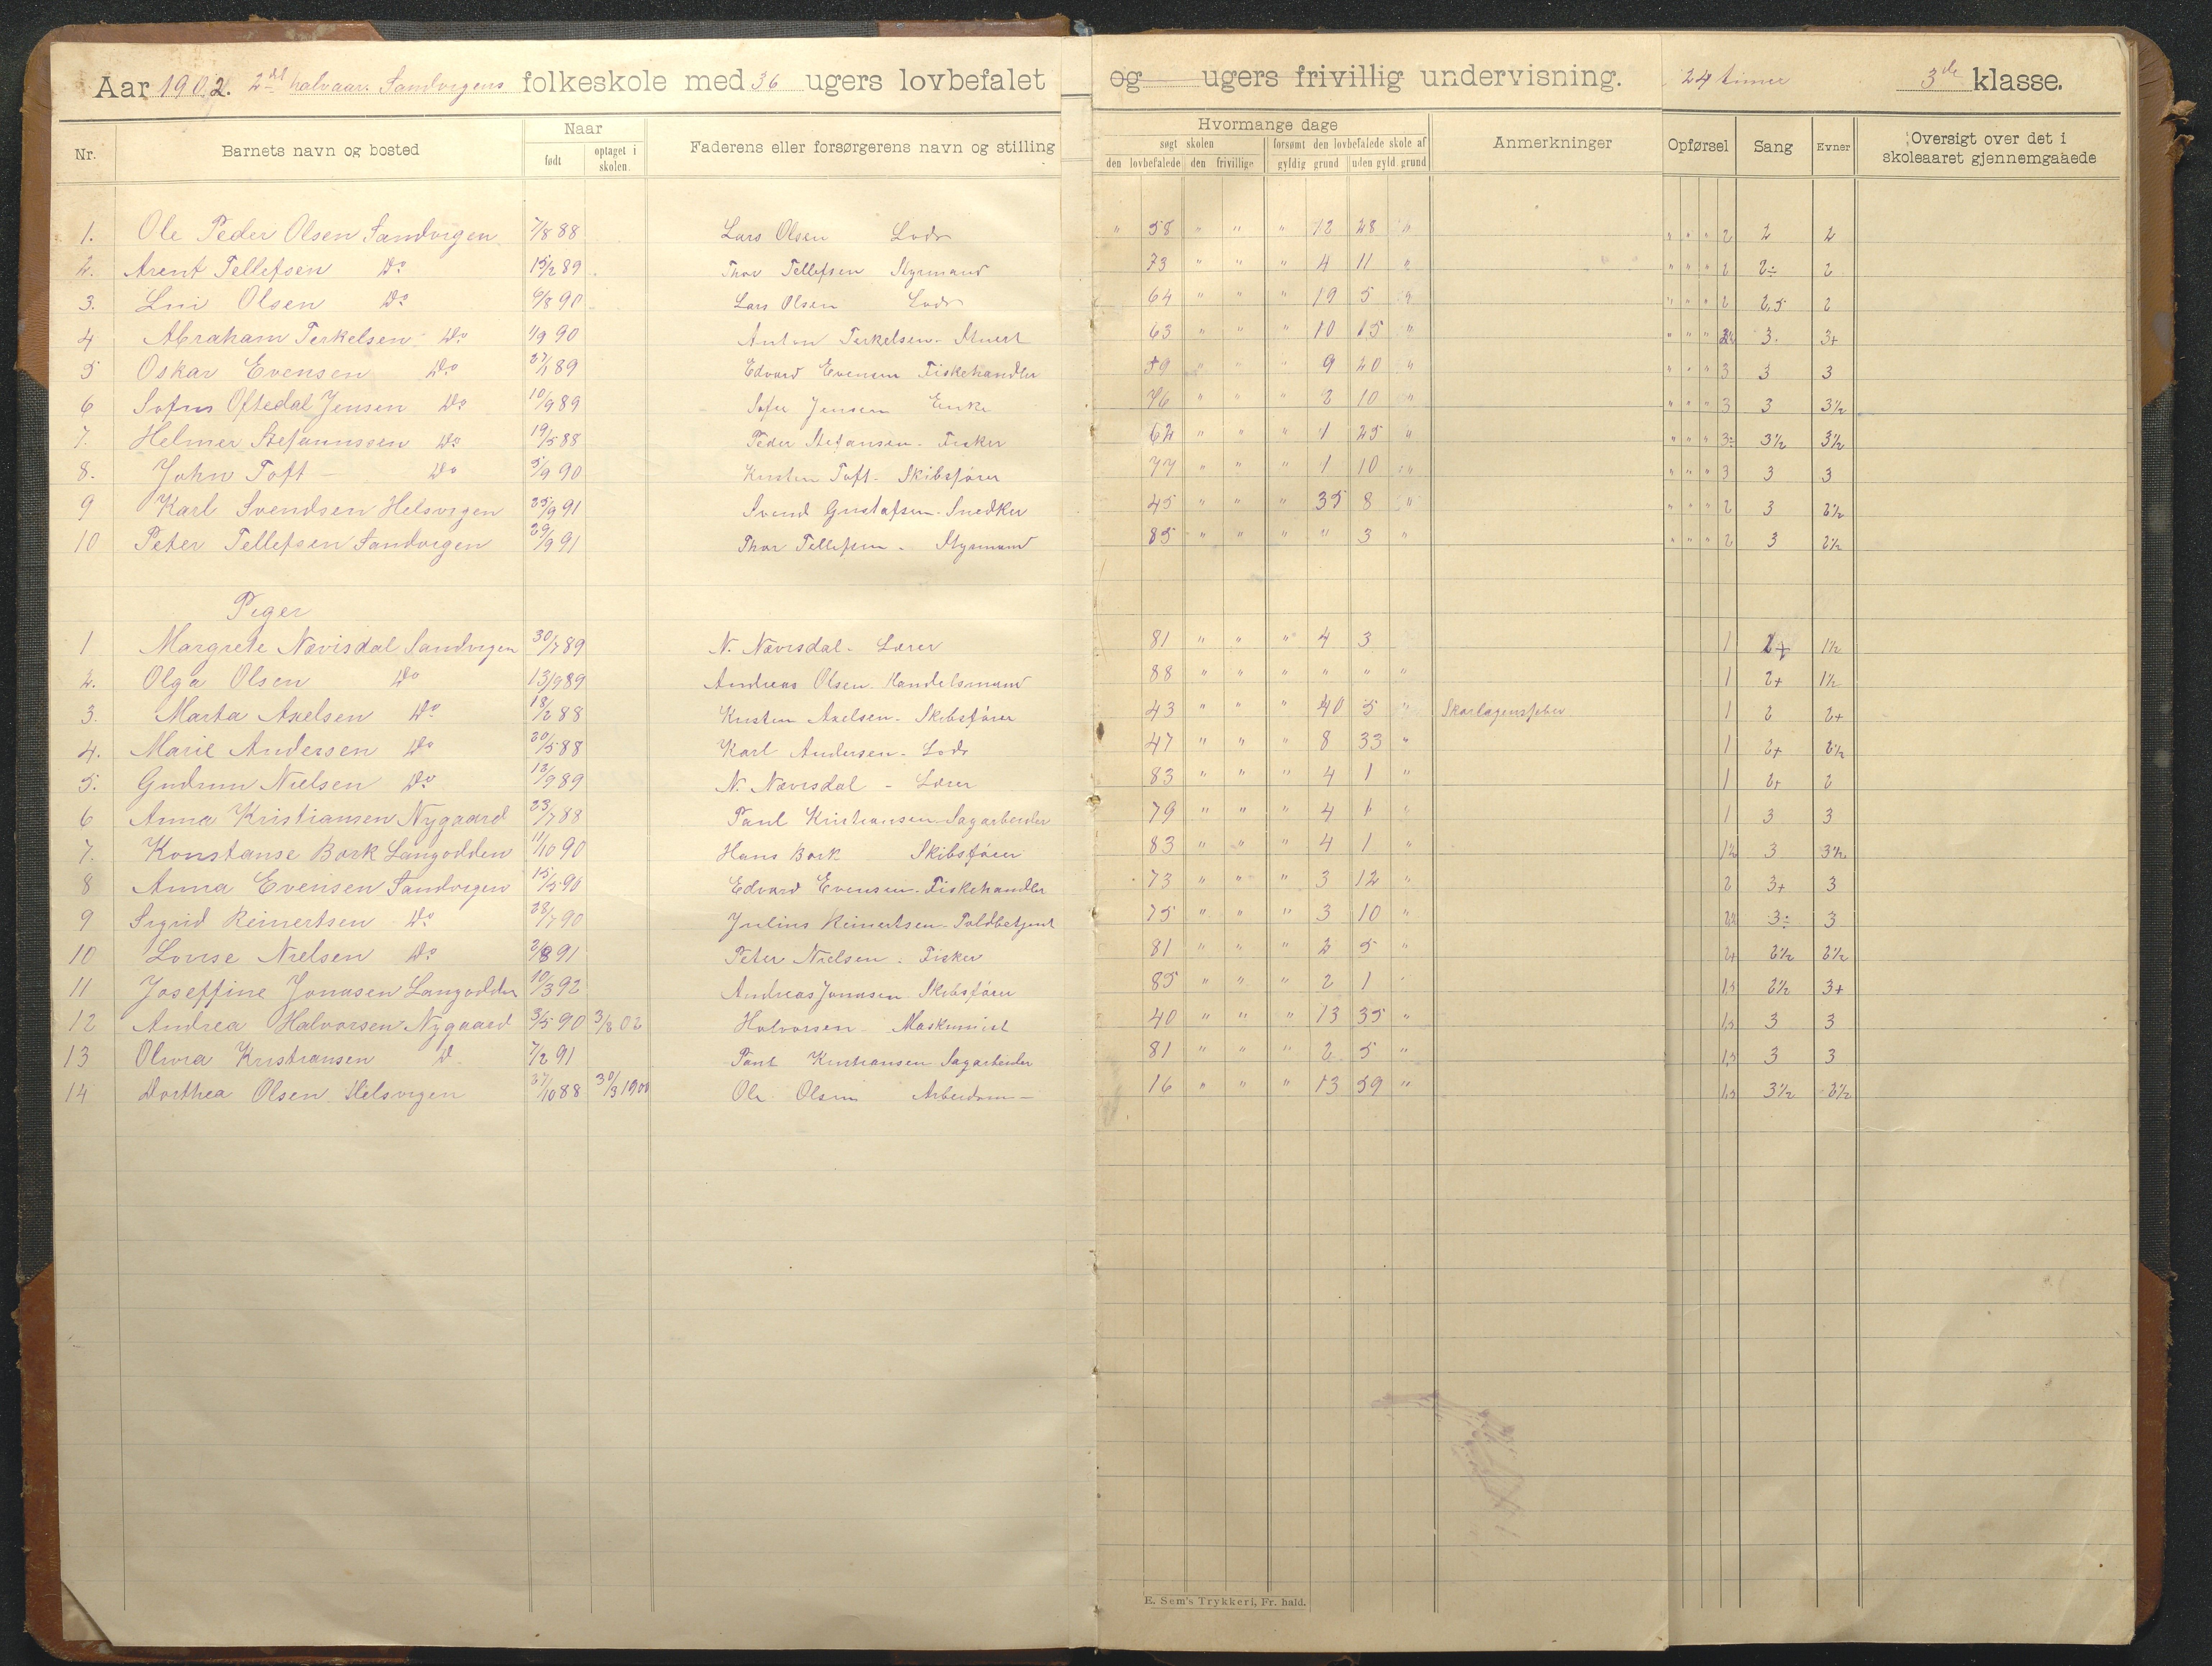 Aar 1902. 2det halvaar. Sandvigens folkeskole med 36 ugers lovbefalet og ugers frivillig undervisning. 24 timer 3de klasse.
Nr. Barnets navn og bosted Naar født optaget i skolen. Faderens eller forsørgerens navn og stilling Hvormange dage søgt skolen den lovbefalede den frivillige forsømt den lovbefalede skole af gyldig grund uden gyld. grund Anmerkninger Opførsel Sang Evner Oversigt over det i skoleaaret gjennemgaaede
1. Ole Peder Olsen Sandvigen 7/8 88 Lars Olsen Lods " 58 " " " 12 28 " " " " 2 2 2
2. Arent Tellefsen Do 15/2 89 Thor Tellefsen Styrmand 73 " " " 4 11 " " " " 2 2÷ 2
3. Olsen Do 6/8 90 Lars Olsen Lods 64 " " " 19 5 " " " " 2 2,5 2
4 Abraham Terkelsen Do 1/9 90 Anton Terkelsen - Stuert 63 " " " 10 15 " " " " 3. 3+
5 Oskar Evensen Do 27/1 89 Edvard Evensen Fiskehandler 59 " " " 9 20 " " " " 3 3 3
6 Oftedal Jensen Do 10/9 89 Sofie Jensen Enke 76 " " " 2 10 " " " " 3 3 3½
7. Helmer Stefanussen Do 19/5 88 Peder Stefansen - Fisker 62 " " " 1 25 " " " " 3÷ 3½ 3½
8. John Toft - Do 5/9 90 Kristen Toft - Skibsfører 77 " " " 1 10 " " " " 3 3 3
9 Karl Svendsen Helsvigen 25/9 91 Svend Gustafsen - Snedker 45 " " " 35 8 " " " " 2 3 2½
10 Peter Tellefsen Sandvigen 29/9 91 Thor Tellefsen - Styrmand 85 " " " " 3 " " " " 2 3 2½
Piger
1 Margrete Nævisdal Sandvigen 30/7 89 N. Nævisdal - Lærer 81 " " " 4 3 1 2+ 1½
2. Olga Olsen Do 13/9 89 Andreas Olsen - Handelsmand 88 " " " " " " 1 2+ 1½
3. Marta Axelsen Do 18/2 88 Kristen Axelsen - Skibsfører 43 " " " 40 5 " Skarlagensfeber 1 2 2+
4. Marie Andersen Do 20/5 88 Karl Andersen - Lods 47 " " " 8 33 " 1 2+ 2½
5. Gudrun Nielsen Do 13/9 89 N. Nævisdal - Lærer 83 " " " 4 1 " 1 2+ 2
6 Anna Kristiansen Nygaard 23/7 88 Paul Kristiansen - Sagarbeider 79 " " " 4 1 " 1 3 3
7. Konstanse Bork Langodden 11/10 90 Hans Bork Skibsfører 83 " " " 4 1 " 1½ 3 3½
8 Anna Evensen Sandvigen 15/5 90 Edvard Evensen - Fiskehandler 73 " " " 3 12 " 2 3+ 3
9 Sigrid Reinertsen Do 28/7 90 Julius Reinertsen - Toldbetjent 75 " " " 3 10 " 3÷ 3
10 Lovise Nielsen Do 2/8 91 Peter Nielsen - Fisker 81 " " " 2 5 " 2+ 2½ 2½
11 Joseffine Jonasen Langodden 10/3 92 Andreas Jonasen - Skibsfører 85 " " " 2 1 " 1,5 2½ 3+
12 Andrea Halvorsen Nygaard 3/5 90 3/8 02 Halvorsen - Maskinist 40 " " " 13 35 " 1,5 3 3
13 Olivia Kristiansen D 7/2 91 Paul Kristiansen Sagarbeider 81 " " " 2 5 " 1,5 3 3
14 Dorthea Olsen Helsvigen 27/10 88 30/3 1900 Ole Olsen Arbeidsm - 16 " " " 13 59 " 1,5 3½ 2½
E. Sem's Trykkeri, Fr. hald.